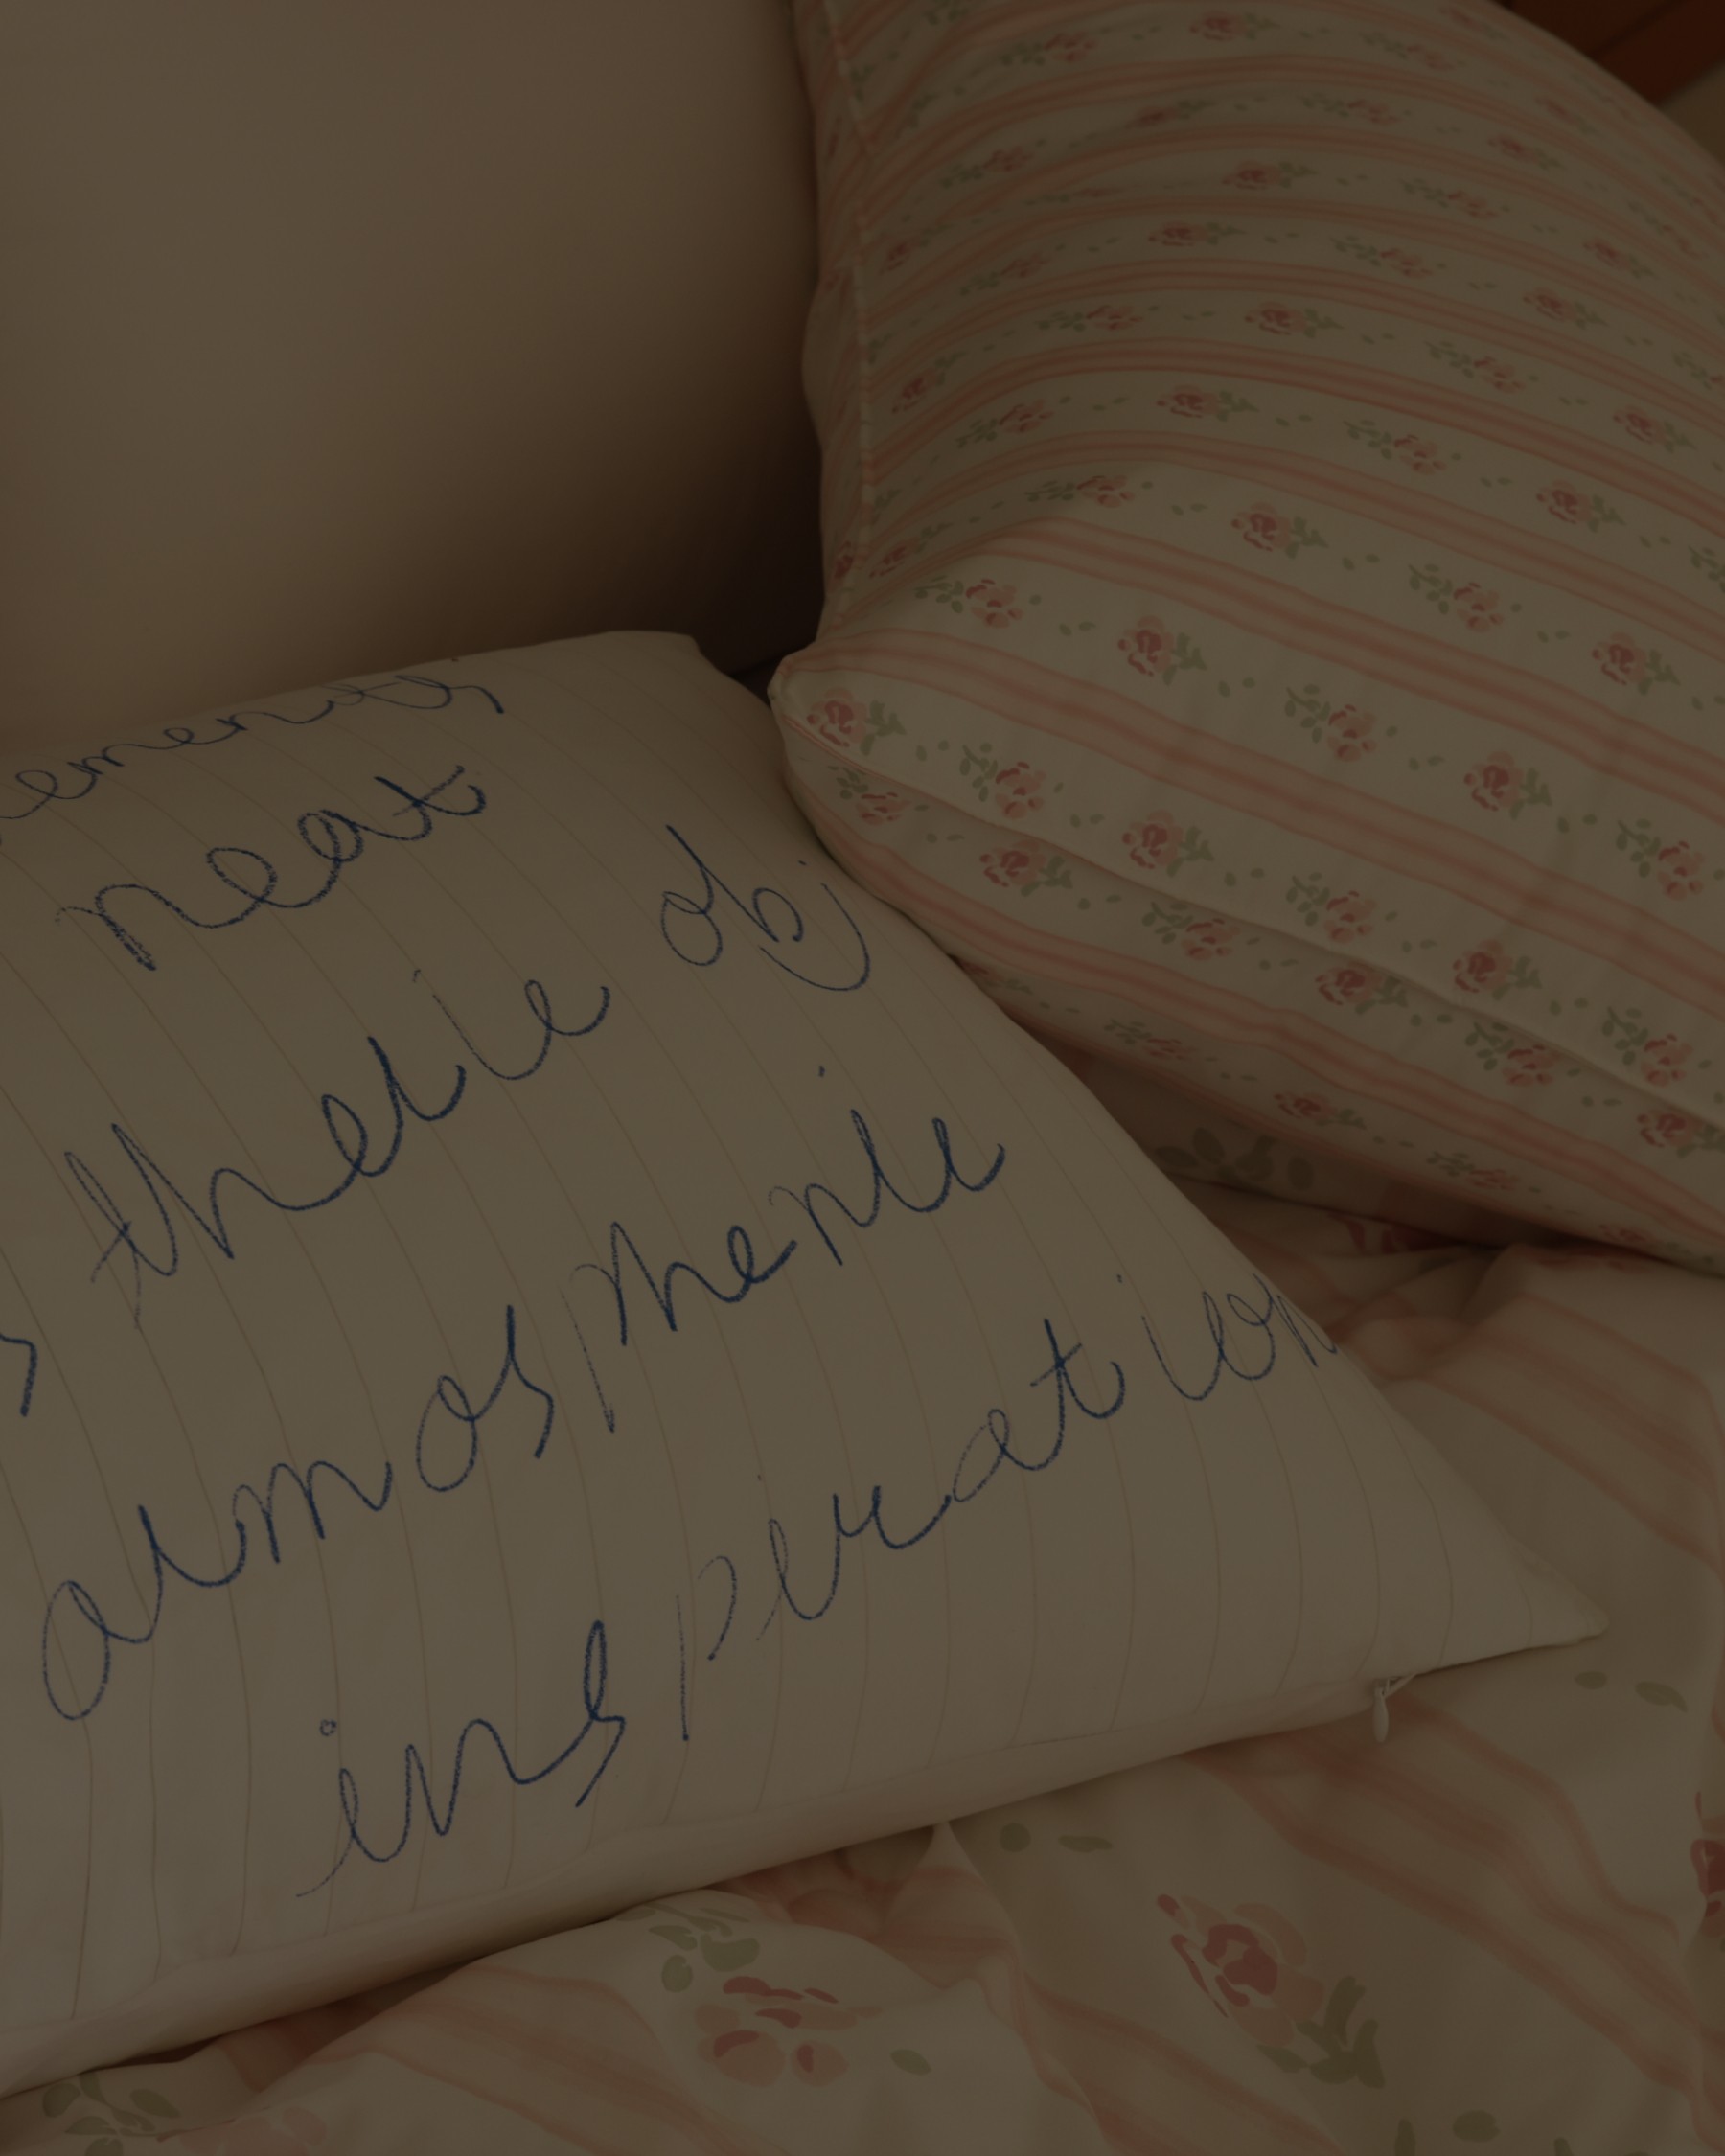 neat
these obj
atmosphere
inspiration